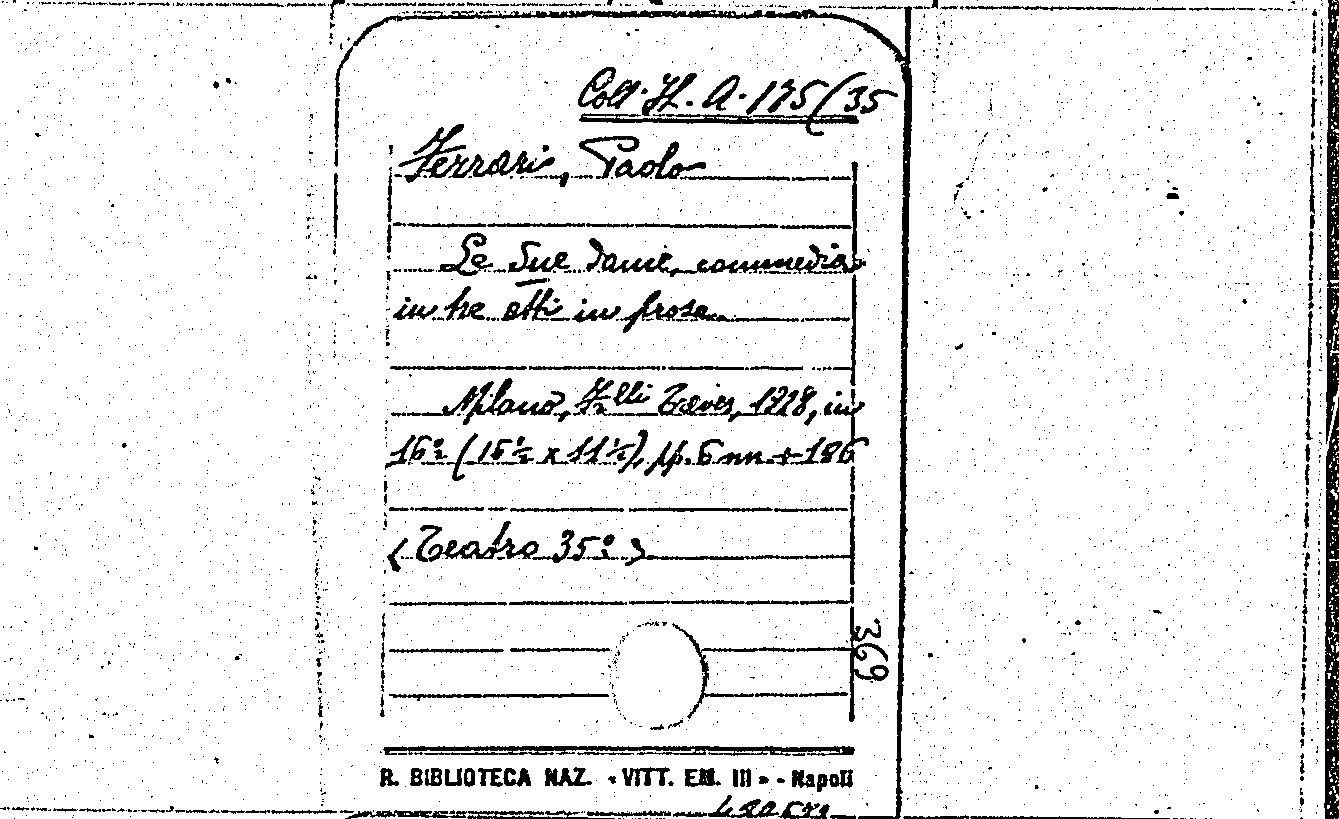 Coll. It. A. 175/35
Ferrari, Paolo
Le Due dame, commedia
in tre atti in prosa
Milano, F.lli Treves, in
16° (16½ x 11½), pp. 6 nn. + 186
(Teatro 35°)
369
R. BIBLIOTECA NAZ. « VITT. EM. III » - Napoli